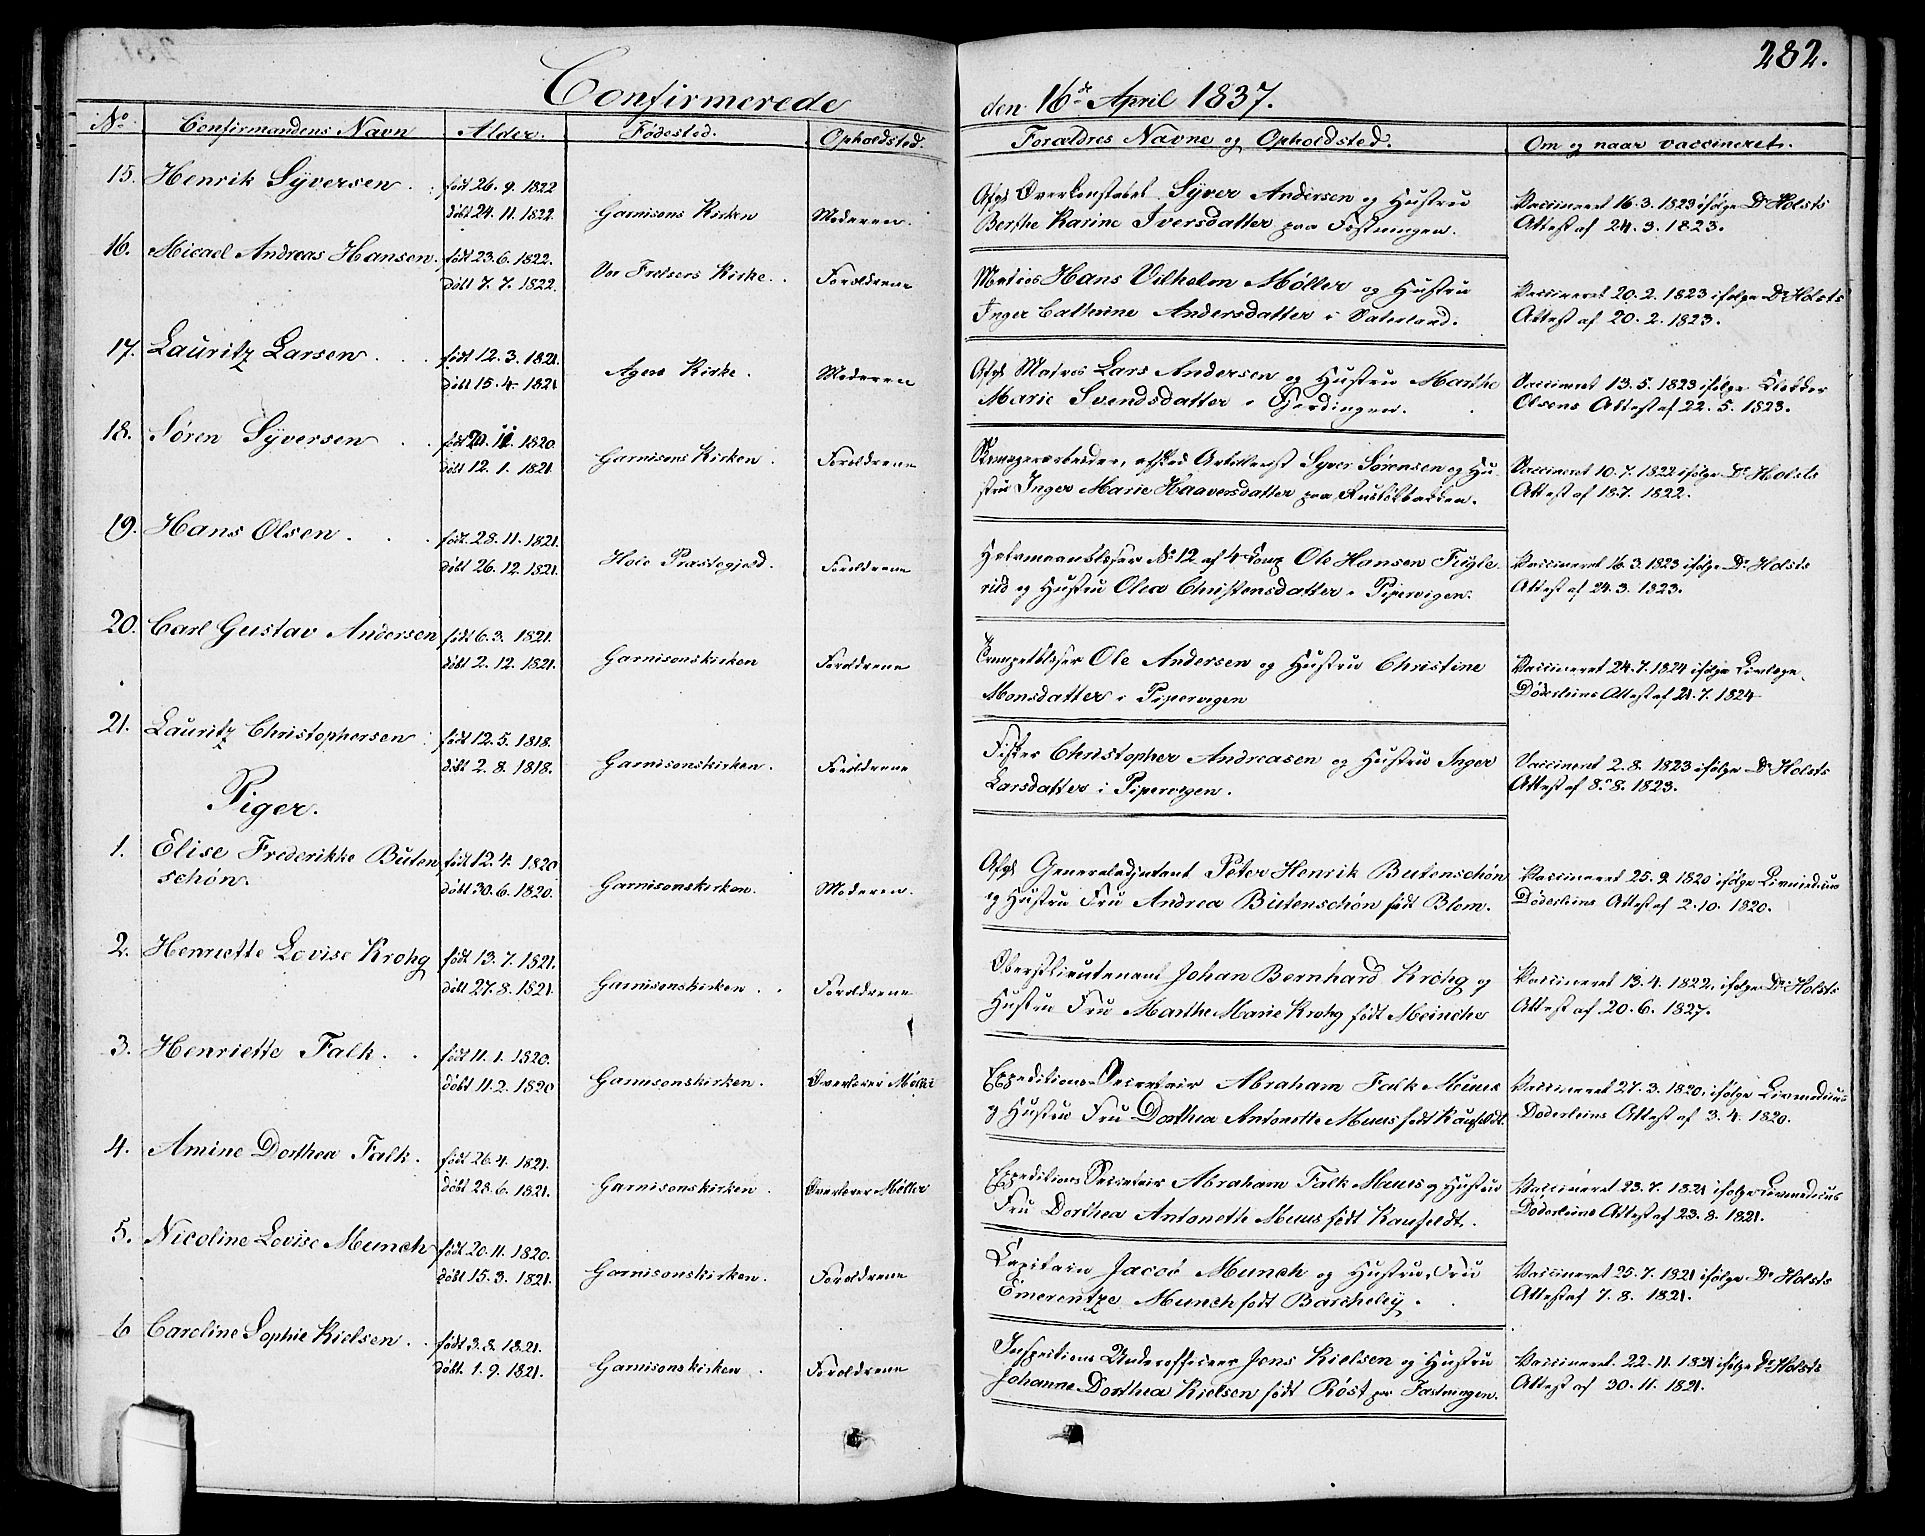 282.
Confirmerede
den 16de April 1837.
No. Confirmandens Navn Alder. Fødested. Opholdsted.
Forældres Navne og Opholdsted. Om og naar vaccineret.
15. Henrik Syversen. født 26. 9. 1822
døbt 24. 11. 1822. Garnisons Kirken Moderen.
Afgl Overkonstabel Syver Andersen og Hustru
Berthe Karine Iversdatter paa Fæstningen.
Vaccineret 16. 3. 1823 ifølge Dr Holsts
Attest af 24. 3. 1823.
16. Micael Andreas Hansen. født 23. 6. 1822.
døbt 7. 7. 1822. Vor Frelsers Kirke. Forældrene
Matros Hans Vilhelm Møller og Hustru
Inger Cathrine Andersdatter i Vaterland.
Vaccineret 20. 2. 1823 ifølge Dr Holsts
Attest af 20. 2. 1823.
17. Lauritz Larsen. født 12. 3. 1821.
døbt 15. 4. 1821 Agers Kirke. Moderen
Afgl Matros Lars Andersen og Hustru Marthe
Marie Svendsdatter i Fjerdingen.
Vaccineret 13. 5. 1823 ifølge Klokker
Olsens Attest af 22. 5. 1823.
18. Søren Syversen født 20. 11. 1820.
døbt 12. 1. 1821 Garnisons Kirken. Forældrene
afsked Artillerist Syver Sørensen og Hu-
stru Inger Marie Haaversdatter paa
Vaccineret 10. 7. 1822 ifølge Dr Holsts
Attest af 18 7. 1822.
19. Hans Olsen. født. 28. 11. 1821.
døbt 26. 12. 1821. Hole Præstegjeld. Forældrene
No 12 af 4 Comp Ole Hansen Fugle
rud og Hustru Olea Christensdatter i Pipervigen.
Vaccineret 16. 3. 1823 ifølge Dr Holsts
Attest af 24. 3. 1823.
20. Carl Gustav Andersen født 6. 3. 1821.
døbt 2. 12. 1821. Garnisonskirken Forældrene
Trompetblæser Ole Andersen og Hustru Christine
Monsdatter i Pipervigen
Vaccineret 24. 7. 1824 ifølge Livlæge
Døderleins Attest af 24. 7. 1824
21. Lauritz Christophersen født 12. 5. 1818.
døbt 2. 8. 1818. Garnisonskirken. Forældrene
Fisker Christopher Andreasen og Hustru Inger
Larsdatter i Pipervigen.
Vaccineret 2. 8. 1823 ifølge Dr Holsts
Attest af 8. 8. 1823.
Piger.
1. Elise Frederikke Buten
schøn. født 12. 4. 1820
døbt 30. 6. 1820. Garnisonskirken. Moderen.
Afgl Generaladjutant Peter Henrik Butenschøn
og Hustru Fru Andrea Butenschøn født Blom.
Vaccineret 25. 9. 1820 ifølge Livmedicus
Døderleins Attest af 2. 10. 1820.
2. Henriette Lovise Krohg født 13. 7. 1821.
døbt 27. 8. 1821 Garnisonskirken. Forældrene
Oberstlieutenant Johan Bernhard Krohg og
Hustru Fru Marthe Marie Krohg født Meinche
Vaccineret 13. 4. 1822. ifølge Dr Holsts
Attest af 20. 6. 1827.
3. Henriette Falk. født 11. 1. 1820.
døbt 11. 2. 1820 Garnisonskirken. Overlærer Møller
Expeditions-Secretair Abraham Falk Muus
og Hustru Fru Dorthea Antonette Muus født Kaufeldt.
Vaccineret 27. 3. 1820. ifølge Livmedicus
Døderleins Attest af 3. 4. 1820.
4. Amine Dorthea Falk. født 26. 4. 1821.
døbt 28. 6. 1821. Garnisonskirken. Overlærer Møller
Expeditions Secretair Abraham Falk Muus og Hustru
Fru Dorthea Antonette Muus født Kaufeldt.
Vaccineret 23. 7. 1821 ifølge Livmedicus
Døderleins Attest af 23. 8. 1821.
5. Nicoline Lovise Munch født 20. 11. 1820.
døbt 15. 3. 1821. Garnisonskirken. Forældrene
Capitain Jacob Munch og Hustru Fru
Emerentze Munch født Barcheley.
Vaccineret 25. 7. 1821 ifølge Dr Holsts
Attest af 7. 8. 1821.
6 Caroline Sophie Kielsen. født 3. 8. 1821.
døbt. 1. 9. 1821. Garnisonskirken. Forældrene
Inspections Underofficeer Jens Kielsen og Hustru
Johanne Dorthea Kielsen født Røst paa Fæstningen.
Vaccineret. 22. 11. 1821 ifølge Dr Holsts
Attest af 30. 11. 1821.